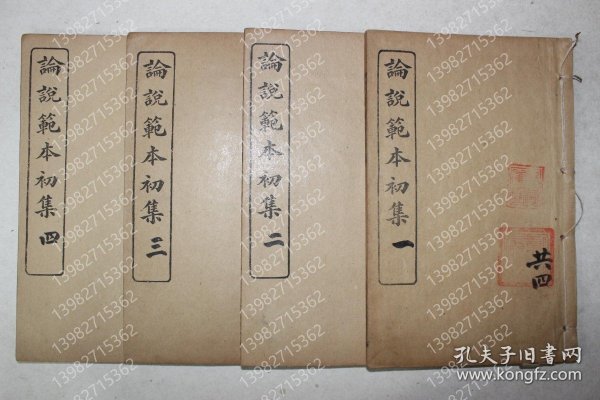 論說範本初集 四
論說範本初集 三
論說範本初集 二
論說範本初集 一
共四
13982715362
孔夫子旧书网
www.kongfz.com